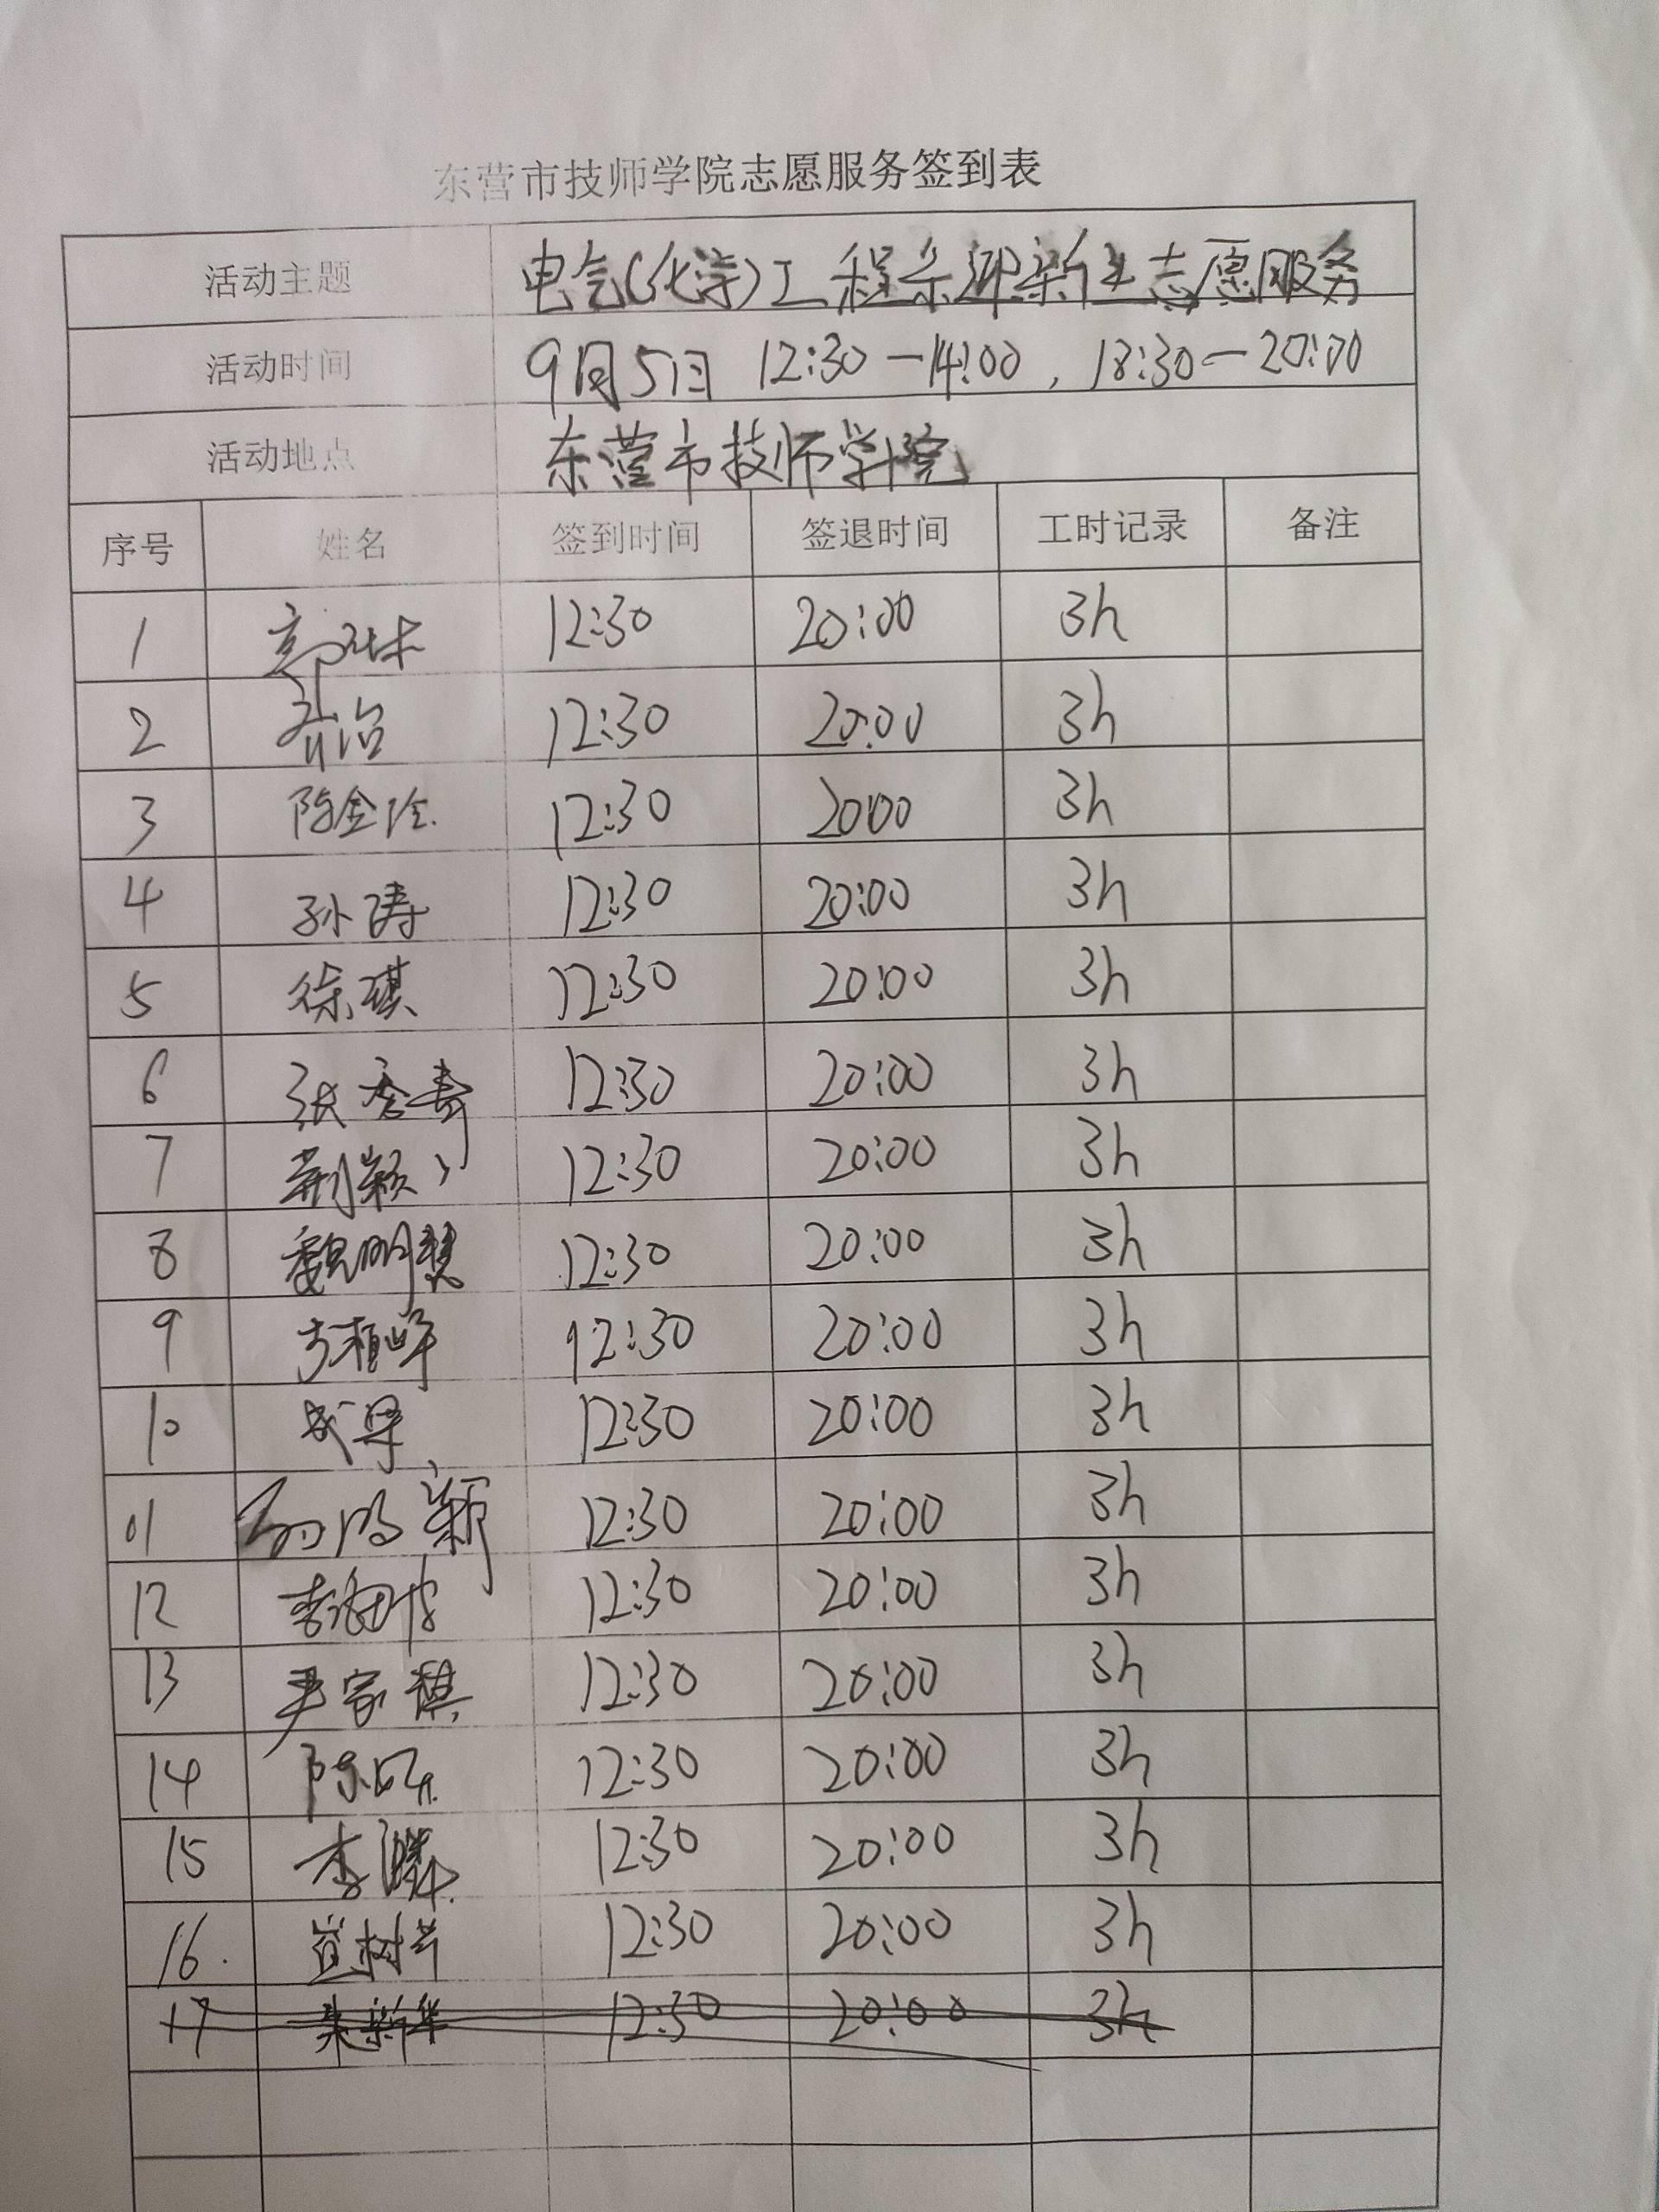 东营市技师学院志愿服务签到表
活动主题 电气(化学)工程系迎新生志愿服务
活动时间 9月5日 12:30—14:00，18:30—20:00
活动地点 东营市技师学院
序号 姓名 签到时间 签退时间 工时记录 备注
1 12:30 20:00 3h
2 乔治 12:30 20:00 3h
3 陈金 12:30 20:00 3h
4 孙涛 12:30 20:00 3h
5 徐琪 12:30 20:00 3h
6 张秀 12:30 20:00 3h
7 荆颖 12:30 20:00 3h
8 魏明慧 12:30 20:00 3h
9 12:30 20:00 3h
10 成果 12:30 20:00 3h
11 颖 12:30 20:00 3h
12 李 12:30 20:00 3h
13 尹家祺 12:30 20:00 3h
14 陈 12:30 20:00 3h
15 李 12:30 20:00 3h
16 树 12:30 20:00 3h
17 朱新华 12:30 20:00 3h